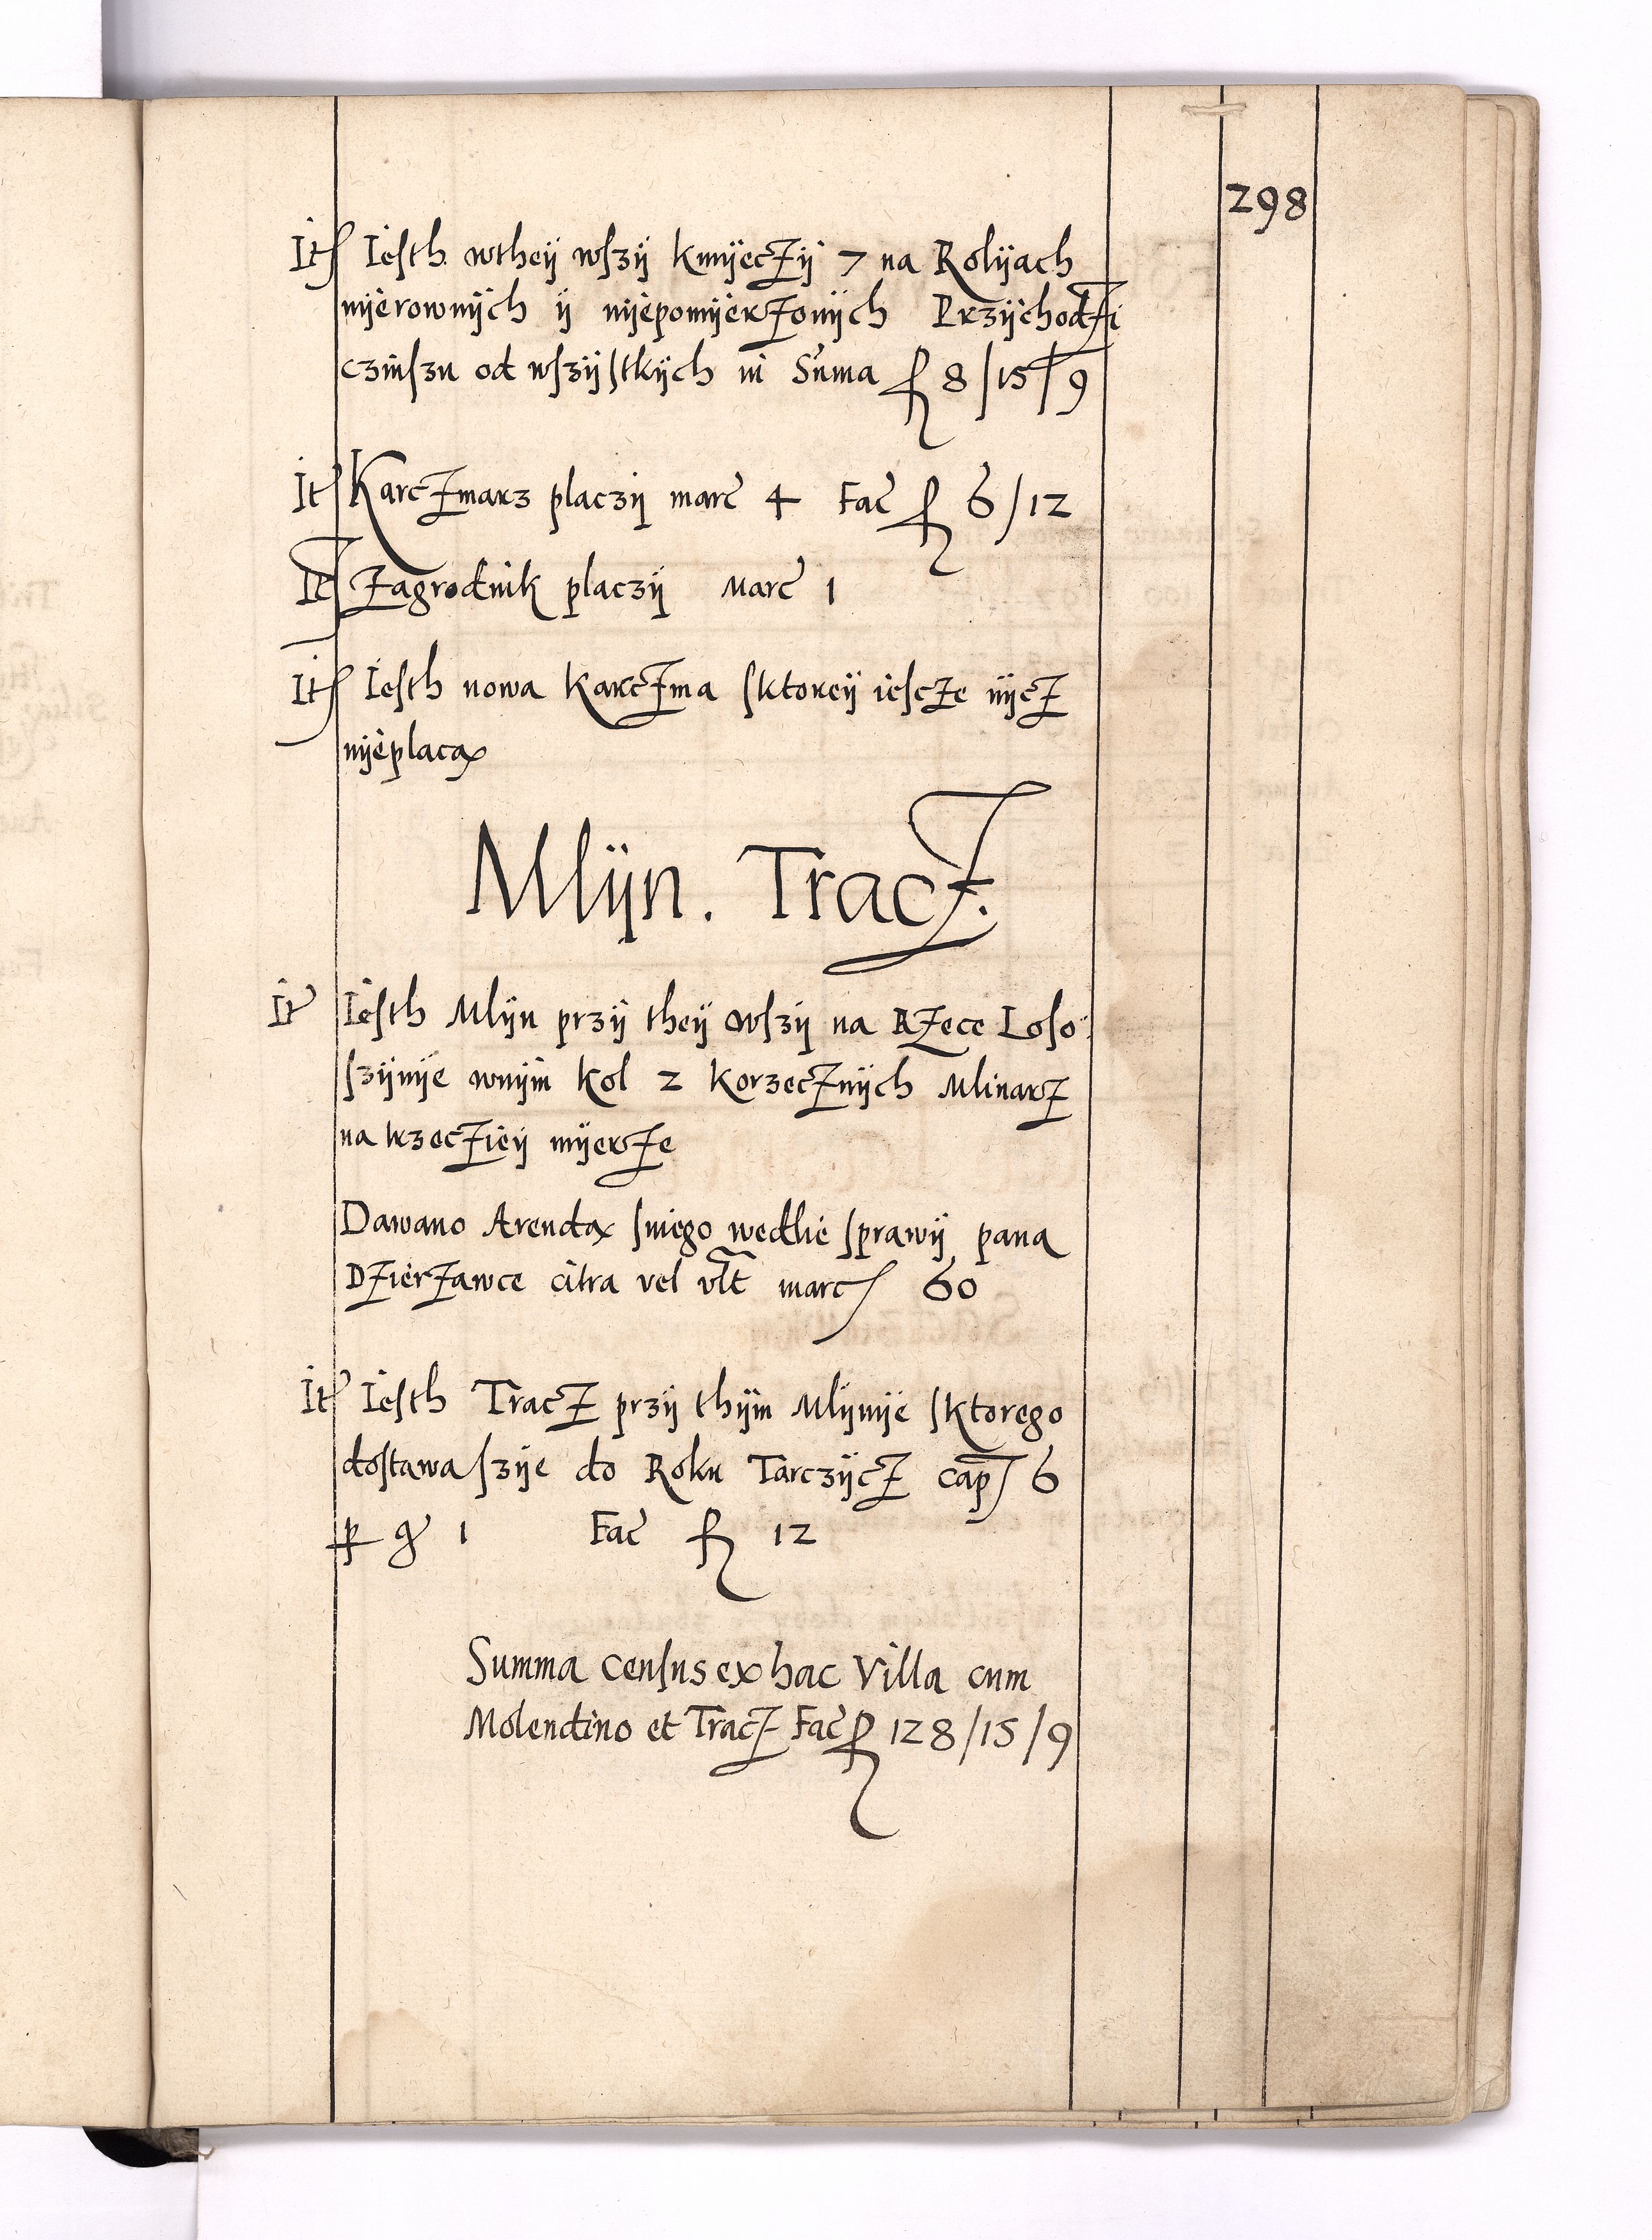 298
It Iesth wtheÿ wszÿ kmÿeczÿ 7 na Rolÿach
nÿerownÿch ÿ nÿepomÿerzonÿch Przÿchodzi
czinszu od wszÿstkÿch in Suma fl 8/15/9
It Karczmarz placzÿ marc 4 Fac fl 6/12
It Zagrodnik placzÿ Marc 1
It Iesth nowa karczma sktoreÿ iescze nÿcz
nÿeplacą
Mlÿn. Tracz.
It Iesth Mlÿn przÿ theÿ wszÿ na Rzece Loso
szÿnÿe wnÿm kol 2 korzecznÿch Mlinarz
na trzeczieÿ mÿerze
Dawano Arendą sniego wedlie sprawÿ pana
Dzierzawce citra vel vlt marc 60
It Iesth Tracz przÿ thÿm Mlÿnÿe sktorego
dostawa szÿe do Roku Tarczÿcz cap 6
per gr 1 Fac fl 12
Summa census ex hac Villa cum
Molendino et Tracz Fac fl 128/15/9